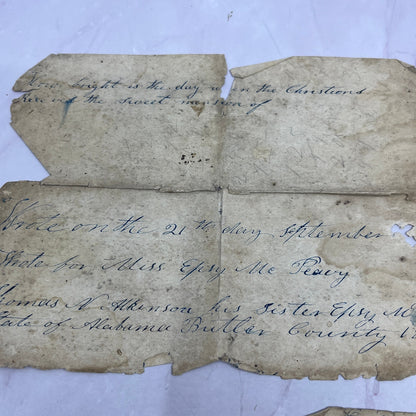 How bright is the day when the Christians
the sweet mansion of
Wrote on the 21th day September
Wrote for Miss Epsy Mc Peavy
Thomas N. Atkinson his Sister Epsy M
State of Alabama Butler County 18